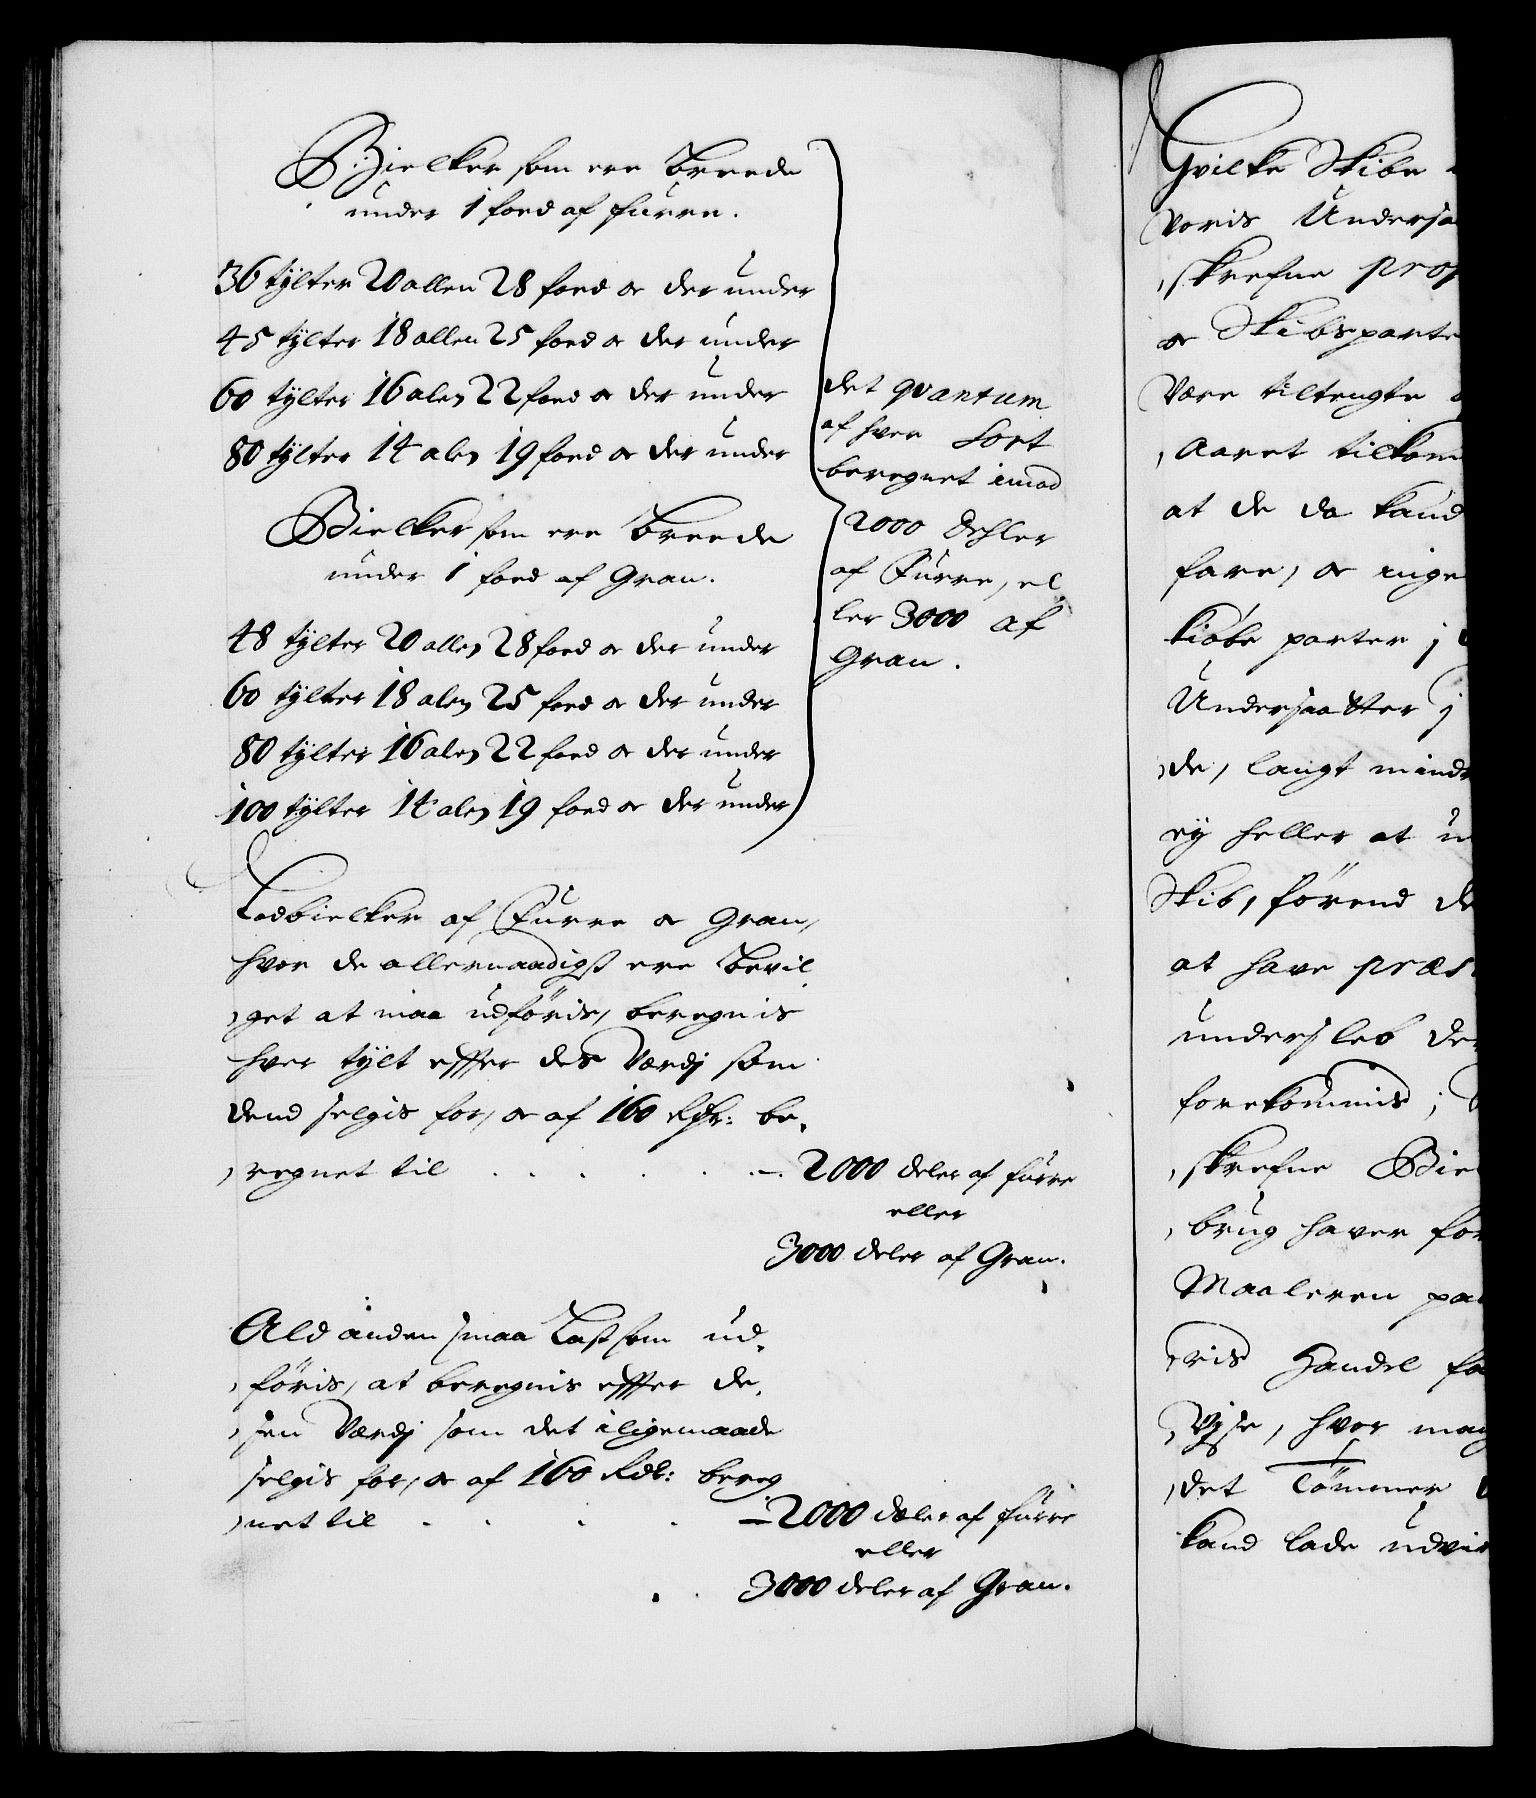 Bielker som ere Breede
under 1 foed af furre.
36 tÿlter 20 allen 28 foed oc der under
45 tÿlter 18 allen 25 foed oc der under
60 tÿlter 16 alen 22 foed oc der under
80 tÿlter 14 alen 19 foed oc der under
Bielker som ere Breede
under 1 foed af Gran.
48 tÿlter 20 allen 28 foed oc der under
60 tÿlter 18 alen 25 foed oc der under
80 tÿlter 16 alen 22 foed oc der under
100 tÿlter 14 alen 19 foed oc der under
det qvantum
af hver Sort
beregnet imod
2000 Dehler
af Furre, el
ler 3000 af
Gran.
Lodbielker af Furre oc Gran,
hvor de allernaadigst ere Bevil
get at maa udföris, beregnis
hver tÿlt effter des Værdj som
dend selgis for, oc af 160 Rdr: be,
regnet til . . . . . . 2000 deler af furre
eller
3000 deler af Gran.
Ald anden smaa Last som ud,
föris, at beregnis effter de,
sen Værdj som det iligemaade
selgis for, oc af 160 Rdr: bereg
net til . . . . 2000 deler af furre
eller
3000 deler af Gran.
Hvilke Skibe
voris Undersa
skrefne prop
oc Skibsparte
Være tiltengte
Aaret tilkom
at de da kand
fare, oc inge
kiöbe parter j
Undersaatter j
de, langt mindr
eÿ heller at u
Skib, förend de
at have præs
undersleb der
forekommis;
skrefne Biel
brug haver for
Maaleren paa
ris Handel fo
Vÿse, hvor mag
det Tömmer
kand lade udvir